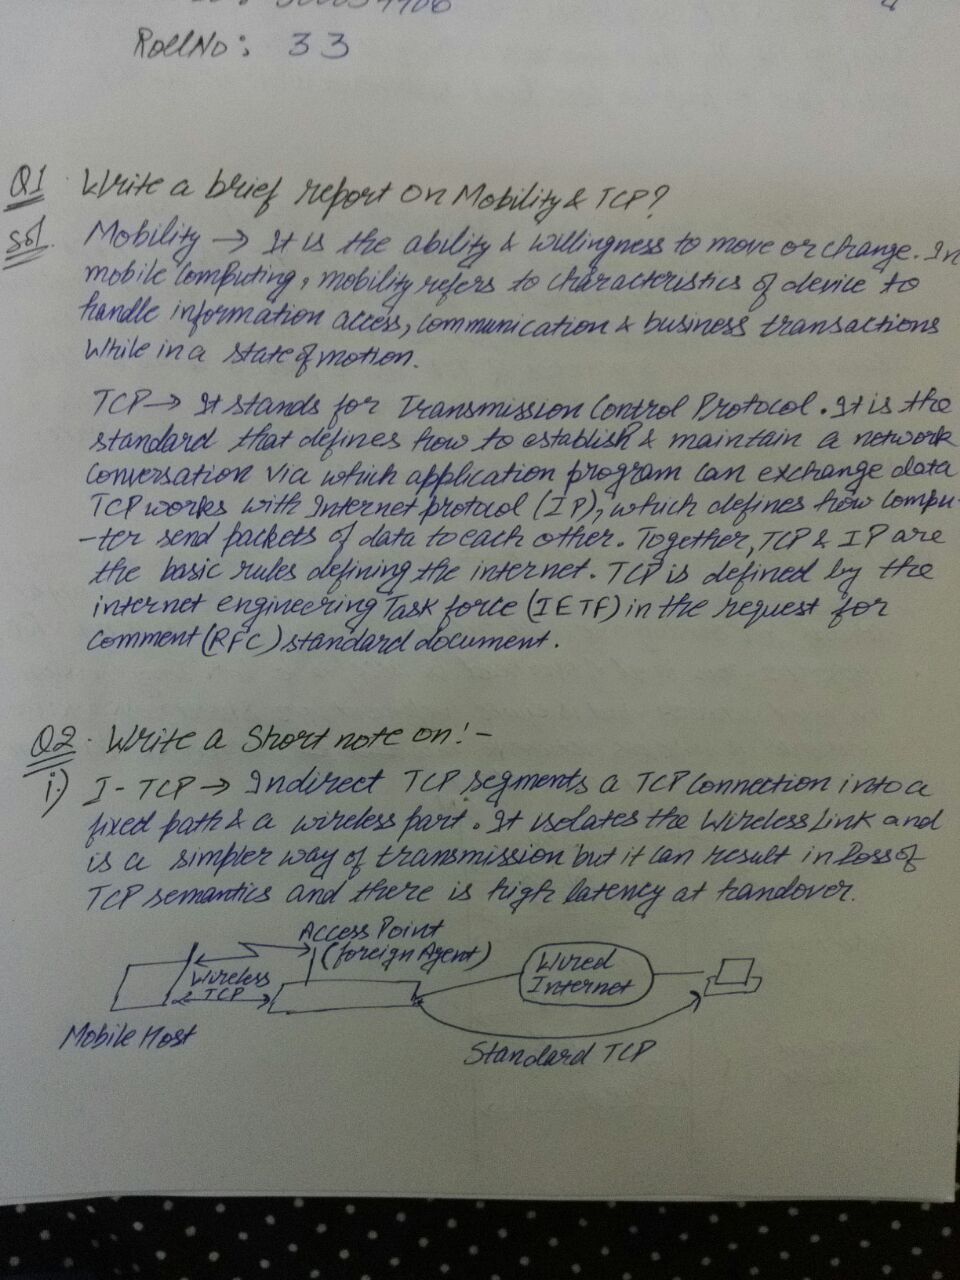 Roll No: 33
Q1. Write a brief report on Mobility & TCP?
Sol. Mobility → It is the ability & willingness to move or change. In
mobile computing, mobility refers to characteristics of device to
handle information access, communication & business transactions
While in a state of motion.
TCP → It stands for Transmission Control Protocol. It is the
standard that defines how to establish & maintain a network
conversation via which application program can exchange data
TCP works with Internet protocol (IP), which defines how compu-
-ter send packets of data to each other. Together, TCP & IP are
the basic rules defining the internet. TCP is defined by the
internet engineering Task force (IETF) in the request for
Comment (RFC) standard document.
Q2. Write a Short note on:-
i) I-TCP → Indirect TCP segments a TCP connection into a
fixed path & a wireless part. It isolates the Wireless Link and
is a simpler way of transmission but it can result in Loss of
TCP semantics and there is high latency at handover.
Access Point
(foreign Agent)
Wireless
TCP
Wired
Internet
Mobile Host
Standard TCP